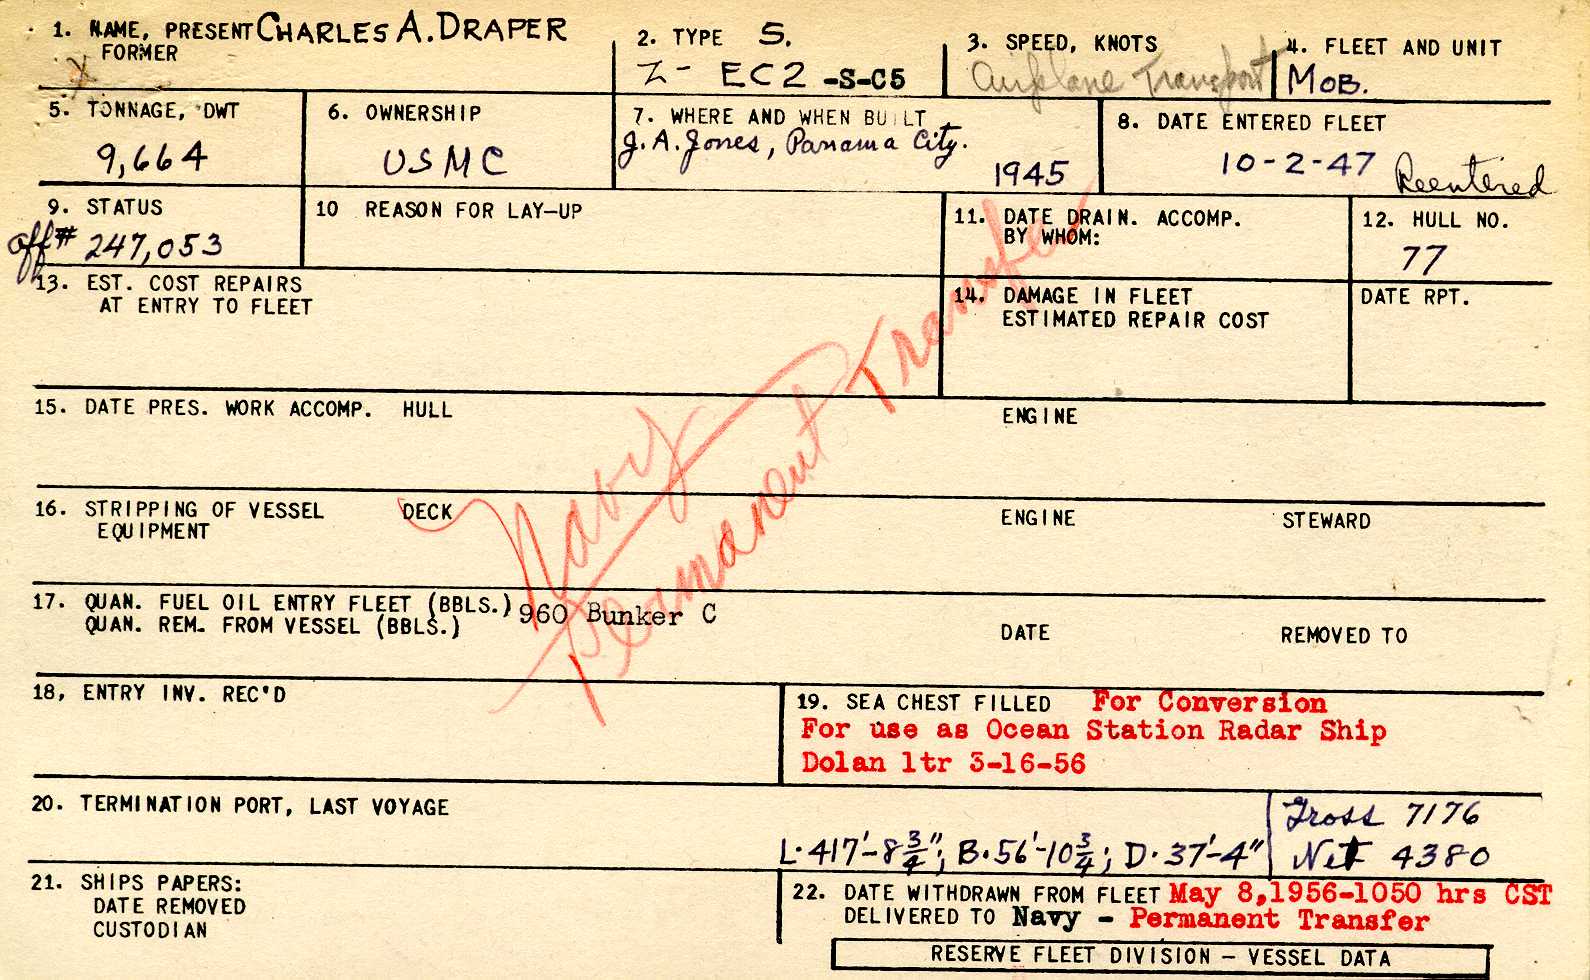 1. NAME, PRESENT CHARLES A. DRAPER
FORMER
X
2. TYPE S.
Z- EC2 -S-C5
3. SPEED, KNOTS
Airplane Transport
4. FLEET AND UNIT
MOB.
5. TONNAGE, DWT
9,664
6. OWNERSHIP
USMC
7. WHERE AND WHEN BUILT
J.A. Jones, Panama City.
1945
8. DATE ENTERED FLEET
10-2-47 Reentered
9. STATUS
Off# 247,053
10 REASON FOR LAY-UP
11. DATE DRAIN. ACCOMP.
BY WHOM:
12. HULL NO.
77
13. EST. COST REPAIRS
AT ENTRY TO FLEET
14. DAMAGE IN FLEET
ESTIMATED REPAIR COST
DATE RPT.
Navy
Permanent Transfer
15. DATE PRES. WORK ACCOMP. HULL
ENGINE
16. STRIPPING OF VESSEL DECK
EQUIPMENT
ENGINE
STEWARD
17. QUAN. FUEL OIL ENTRY FLEET (BBLS.) 960 Bunker C
QUAN. REM. FROM VESSEL (BBLS.)
DATE
REMOVED TO
18, ENTRY INV. REC'D
19. SEA CHEST FILLED For Conversion
For use as Ocean Station Radar Ship
Dolan ltr 3-16-56
20. TERMINATION PORT, LAST VOYAGE
L. 417'-8 3/4"; B. 56'-10 3/4; D. 37'-4"
Gross 7176
Net 4380
21. SHIPS PAPERS:
DATE REMOVED
CUSTODIAN
22. DATE WITHDRAWN FROM FLEET May 8,1956-1050 hrs CST
DELIVERED TO Navy - Permanent Transfer
RESERVE FLEET DIVISION - VESSEL DATA